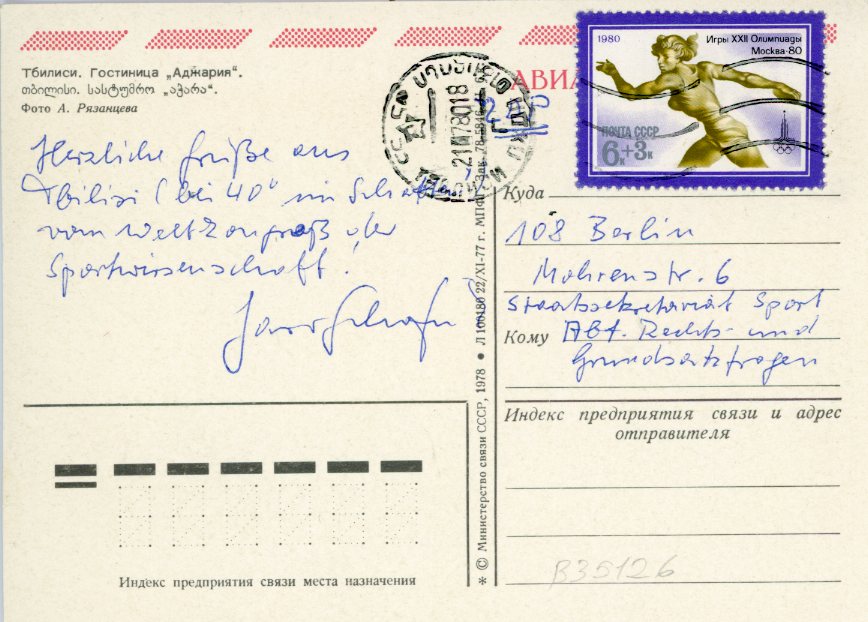 Тбилиси. Гостиница „Аджария“.
თბილისი. სასტუმრო „აჭარა“.
Фото А. Рязанцева
Herzliche Grüße aus
Tbilisi (bei 40° im Schatten)
vom Weltkongreß der
Sportwissenschaft!
АВИА
1980
Игры XXII Олимпиады
Москва-80
ПОЧТА СССР
6к+3к
Куда
108 Berlin
Mohrenstr. 6
Staatssekretariat Sport
Кому Abt. Rechts- und
Grundsatzfragen
Индекс предприятия связи и адрес
отправителя
B35126
Индекс предприятия связи места назначения
* © Министерство связи СССР, 1978 ● Л 100180 22/XI-77 г. МПФГ. Зак. 78-5846